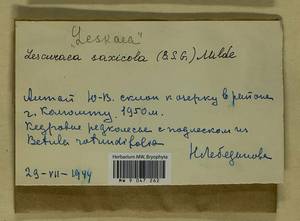 "Leskaea"
Lescuraea saxicola (B.S.G.) Milde
Алтай Ю-В. склон к озерку в районе
г. Камошту. 1950м.
Кедровое редколесье с подлеском из
Betula rotundifolia
29-VII-1944 Н Лебединова
Herbarium MW, Bryophyta
MW 9 047 262